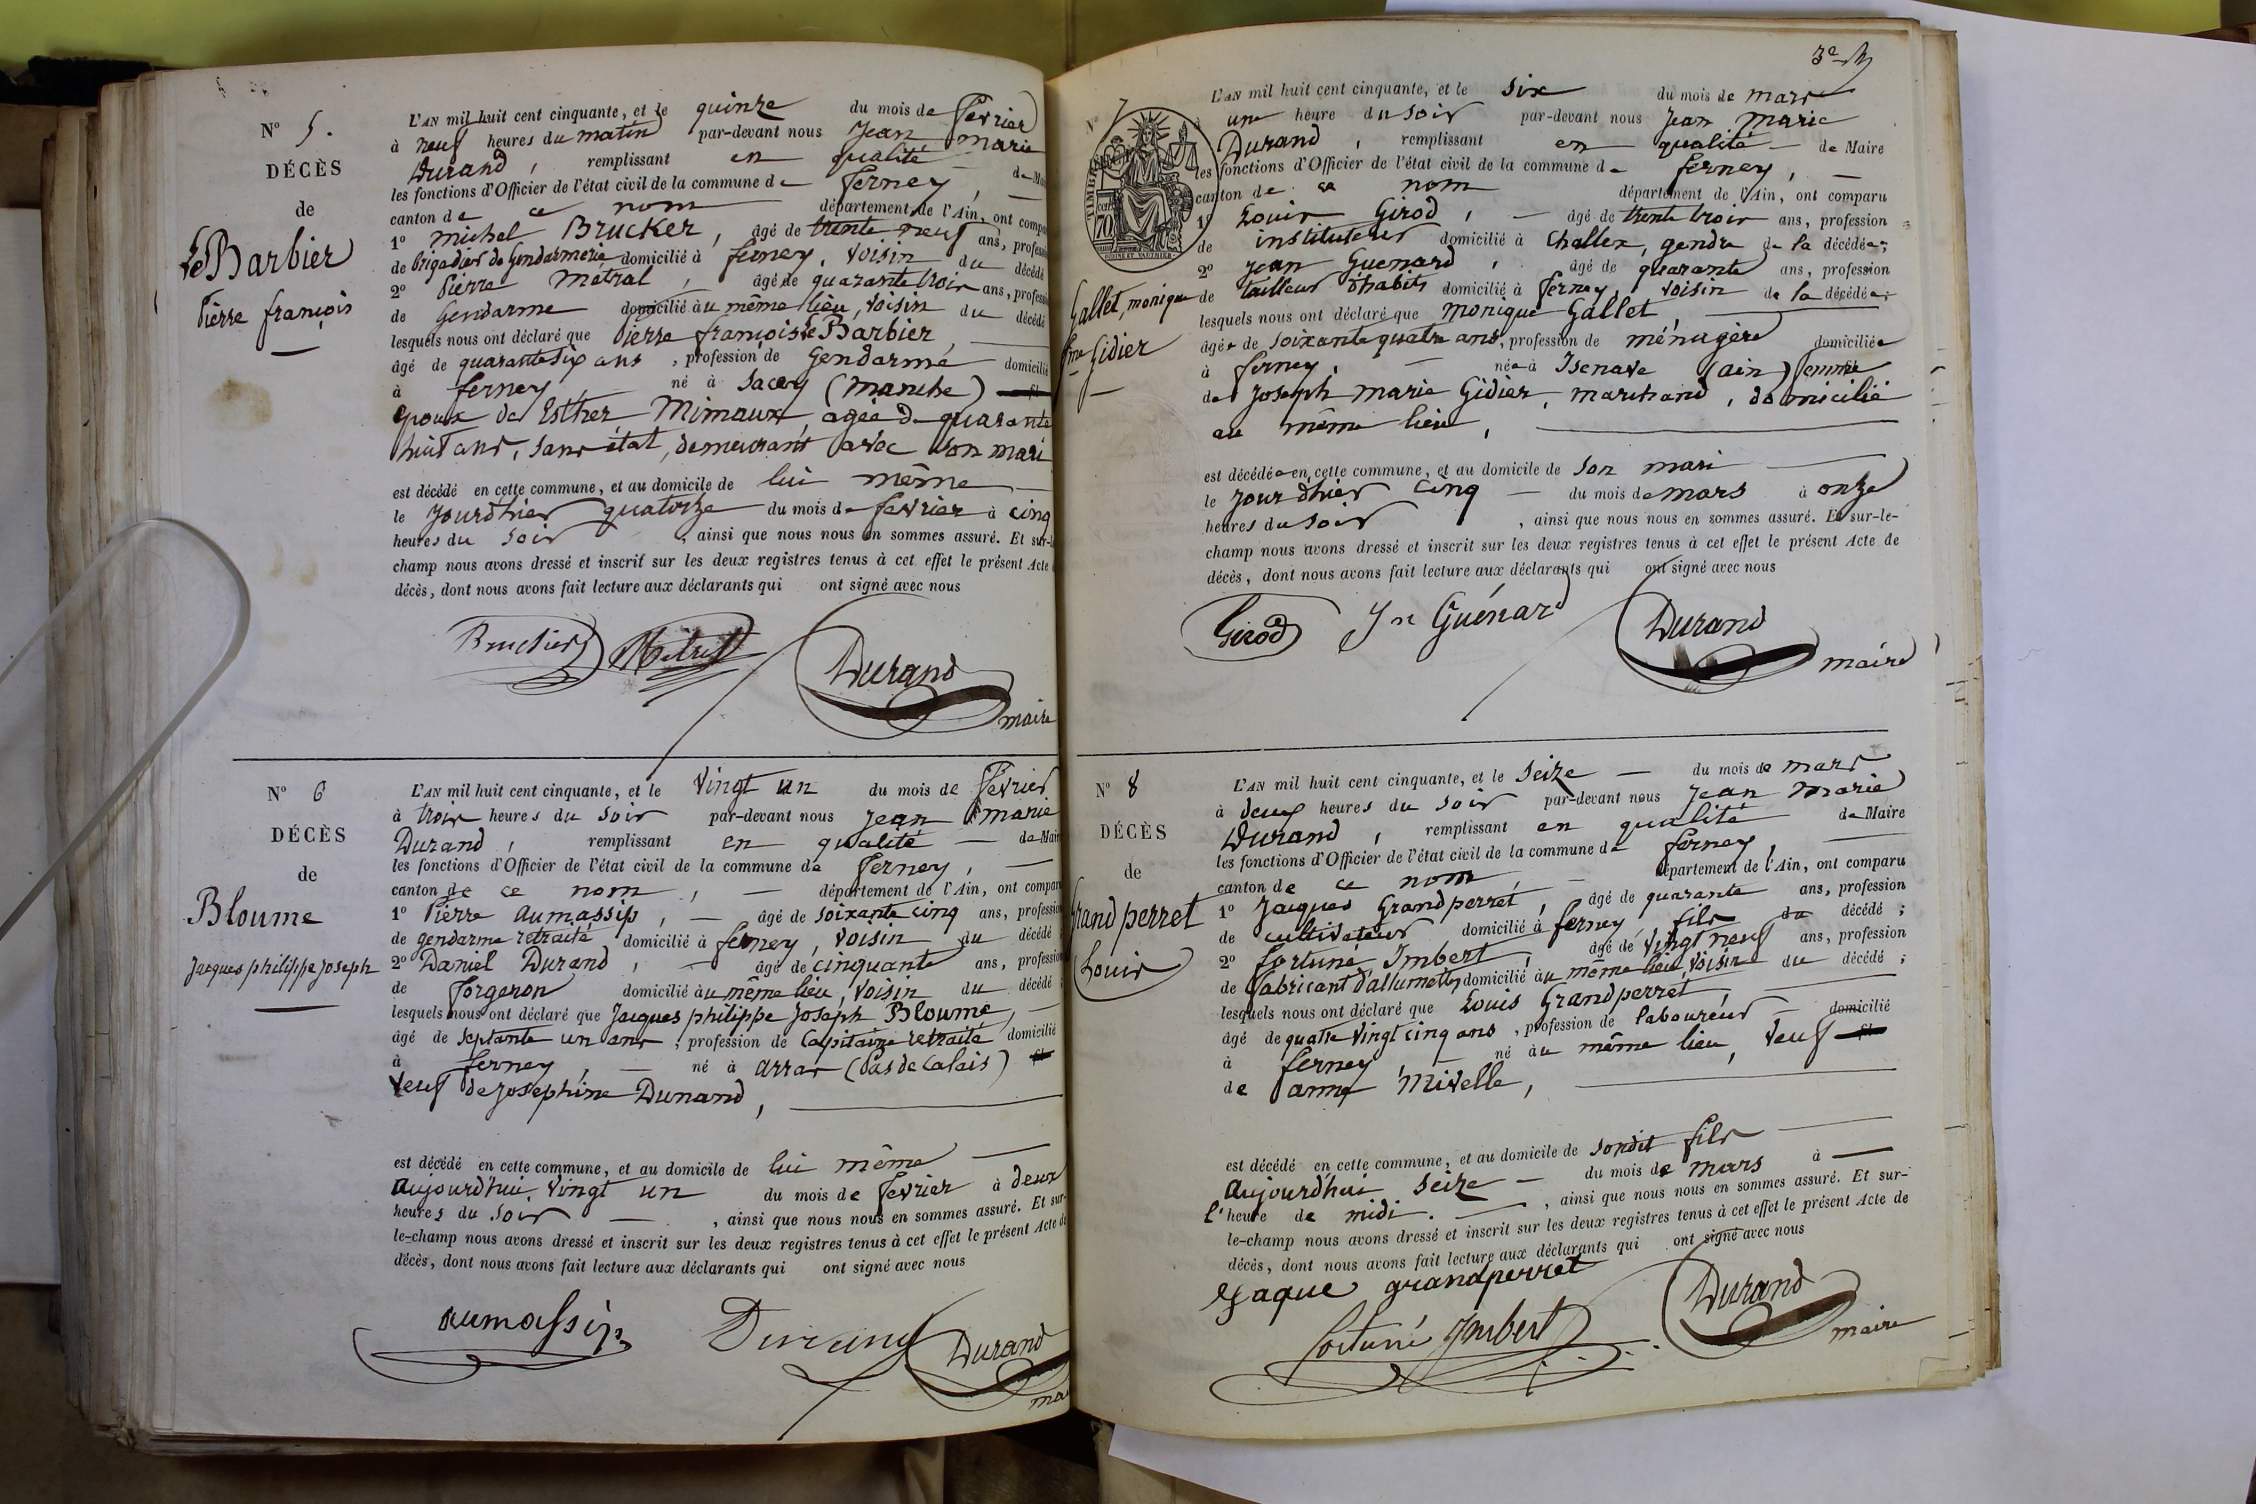 N° 5.
DÉCÈS
de
Le Barbier
Pierre françois
L'AN mil huit cent cinquante, et le quinze du mois de février
à neuf heures du matin par-devant nous Jean marie
Durand, remplissant en qualité de Mai
les fonctions d'Officier de l'état civil de la commune de ferney,
canton de ce nom département de l'Ain, ont compa
1° michel Brucker, âgé de trente neuf ans, profess
de Brigadier de Gendarmerie domicilié à ferney, voisin du décédé
2° Pierre Métral, âgé de quarante trois ans, profess
de Gendarme domicilié àu même lieu, voisin du décédé
lesquels nous ont déclaré que Pierre françois Le Barbier,
âgé de quarante six ans, profession de Gendarme domicilié
à ferney né à Sacey (manche)
époux de Esther Mimaux agée de quarante
huit ans, sans état, demeurant avec son mari
est décédé en cette commune, et au domicile de lui même
le jour d'hier quatorze du mois de fevrier à cinq
heures du soir, ainsi que nous nous en sommes assuré. Et sur-l
champ nous avons dressé et inscrit sur les deux registres tenus à cet effet le présent Acte
décès, dont nous avons fait lecture aux déclarants qui ont signé avec nous
Brucker Métral Durand
maire
N° 6
DÉCÈS
de
Bloume
Jacques philippe Joseph
L'AN mil huit cent cinquante, et le vingt un du mois de février
à trois heures du soir par-devant nous Jean marie
Durand, remplissant en qualité de Mair
les fonctions d'Officier de l'état civil de la commune de ferney,
canton de ce nom, département de l'Ain, ont compar
1° Pierre aumassip, âgé de soixante cinq ans, profession
de gendarme retraité domicilié à ferney, voisin du décédé
2° Daniel Durand, âgé de cinquante ans, profession
de forgeron domicilié àu même lieu, voisin du décédé
lesquels nous ont déclaré que Jacques philippe Joseph Bloume,
âgé de septante un ans, profession de Capitaine retraité domicilié
à ferney, né à arras (Pas de Calais)
veuf de Josephine Dunand,
est décédé en cette commune, et au domicile de lui même
aujourd'hui vingt un du mois de fevrier à deux
heures du soir, ainsi que nous nous en sommes assuré. Et sur-
le-champ nous avons dressé et inscrit sur les deux registres tenus à cet effet le présent Acte de
décès, dont nous avons fait lecture aux déclarants qui ont signé avec nous
aumassip Durand Durand
ma
3e
N° 7
TIMBRE
70
Gallet, monique
fme Gidier
L'AN mil huit cent cinquante, et le six du mois de mars
à une heure du soir par-devant nous Jean marie
Durand, remplissant en qualité de Maire
les fonctions d'Officier de l'état civil de la commune de ferney,
canton de ce nom département de l'Ain, ont comparu
1° Louis Girod, âgé de trente trois ans, profession
de instituteur domicilié à Challex, gendre de la décédée;
2° Jean Guenard, âgé de quarante ans, profession
de tailleur d'habits domicilié à ferney, voisin de la décédée;
lesquels nous ont déclaré que monique Gallet,
âgée de soixante quatre ans, profession de ménagère domiciliée
à ferney, née à Isenave (ain) femme
de Joseph marie Gidier, marchand, domicilié
au même lieu,
est décédée en cette commune, et au domicile de son mari
le jour d'hier cinq du mois de mars à onze
heures du soir, ainsi que nous nous en sommes assuré. Et sur-le-
champ nous avons dressé et inscrit sur les deux registres tenus à cet effet le présent Acte de
décès, dont nous avons fait lecture aux déclarants qui ont signé avec nous
Girod Jn Guénard Durand
maire
N° 8
DÉCÈS
de
Grandperret
Louis
L'AN mil huit cent cinquante, et le seize du mois de mars
à deux heures du soir par-devant nous Jean marie
Durand, remplissant en qualité de Maire
les fonctions d'Officier de l'état civil de la commune de ferney,
canton de ce nom, département de l'Ain, ont comparu
1° Jacques Grandperret, âgé de quarante ans, profession
de cultivateur domicilié à ferney fils du décédé;
2° fortuné Imbert, âgé de vingt neuf ans, profession
de fabricant d'allumettes domicilié àu même lieu, voisin du décédé;
lesquels nous ont déclaré que Louis Grandperret,
âgé de quatre vingt cinq ans, profession de laboureur domicilié
à ferney né àu même lieu, veuf
de anne Mivelle,
est décédé en cette commune, et au domicile de sondit fils
aujourd'hui seize du mois de mars à
l'heure de midi, ainsi que nous nous en sommes assuré. Et sur-
le-champ nous avons dressé et inscrit sur les deux registres tenus à cet effet le présent Acte de
décès, dont nous avons fait lecture aux déclarants qui ont signé avec nous
Jaque grandperret
fortuné Imbert Durand
maire